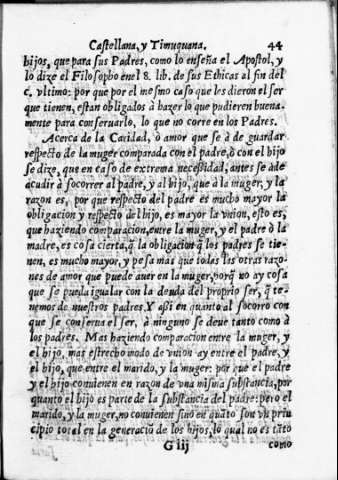 Castellana, y Timuquana. 44
hijos, que para sus Padres, como lo enseña el Apostol, y
lo dize el Filosopho enel 8. lib. de sus Ethicas al fin del
c. vltimo: por que por el mesmo caso que les dieron el ser
que tienen, estan obligados à hazer lo que pudieren buena-
mente para conseruarlo, lo que no corre en los Padres.
Acerca de la Caridad, ò amor que se à de guardar
respecto de la muger comparada con el padre, ò con el hijo
se dize, que en caso de extrema necessidad, antes se ade
acudir à socorrer al padre, y al hijo, que à la muger, y la
razon es, por que respecto del padre es mucho mayor la
obligacion y respecto del hijo, es mayor la vnion, esto es,
que haziendo comparacion, entre la muger, y el padre ò la
madre, es cosa cierta, q̃ la obligacion q̃ los padres se tie-
nen, es mucho mayor, y pesa mas que todas las otras razo-
nes de amor que puede auer en la muger, porq̃ no ay cosa
que se pueda igualar con la deuda del proprio ser, q̃ te-
nemos de nuestros padres. Y assi en quanto al socorro con
que se conserua el ser, à ninguno se deue tanto como à
los padres. Mas haziendo comparacion entre la muger, y
el hijo, mas estrecho modo de vnion ay entre el padre, y
el hijo, que entre el marido, y la muger: por que el padre
y el hijo conuienen en razon de vna misma substancia, por
quanto el hijo es parte de la substancia del padre: pero el
marido, y la muger, no conuienen sino en quãto son vn prin
cipio total en la generaciõ de los hijos, lo qual no es tãto
G iij como